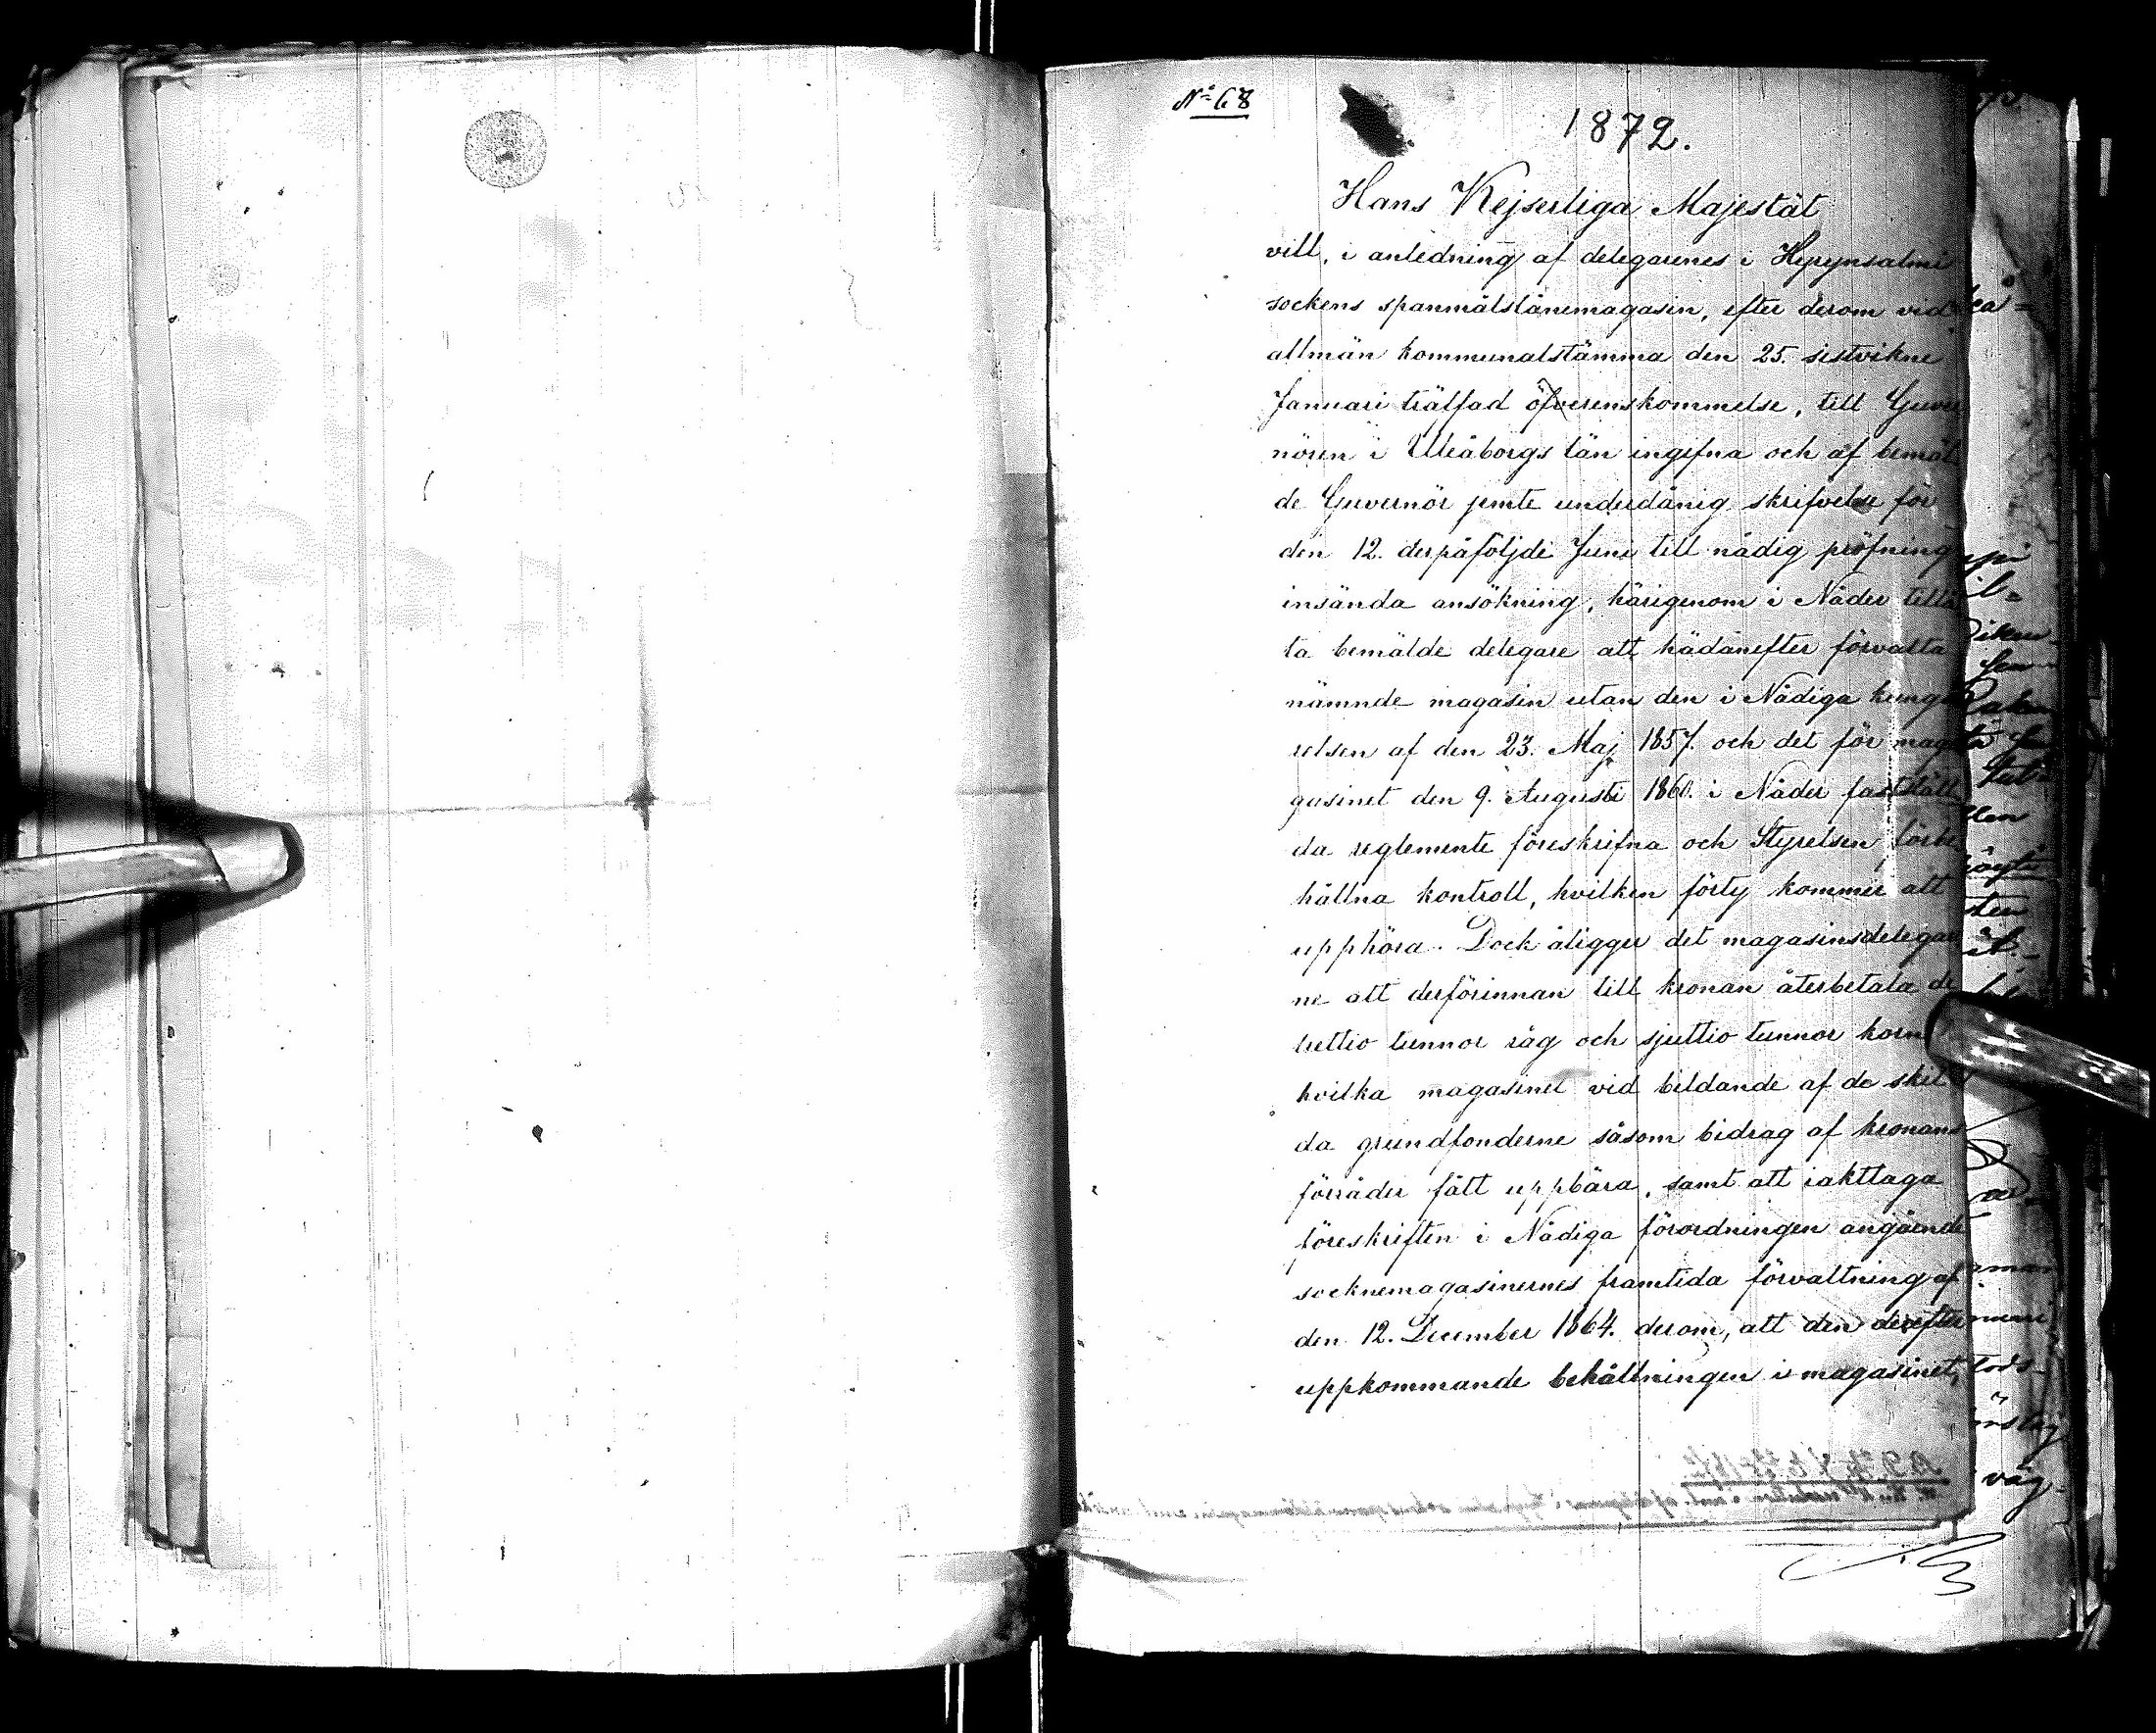 No 68
1872.
Hans Kejserliga Majestät
vill, i anledning af delegarenes i Hyrynsalmi
sockens spanmålslånemagasin, efter derom vid
allmän kommunalstämma den 25. sistvikne
Januari träffad öfverenskommelse, till Guver
nören i Uleåborgs län ingifna och af bemäl
de Guvernör jemte underdånig skrifvelse för
den 12. derpåföljde Juni till nådig pröfning
insända ansökning, härigenom i Nåder tillå
ta bemälde delegare att hädanefter förvalta
nämnde magasin utan den i Nådiga kungö
relsen af den 23. Maj 1857. och det för ma
gasinet den 9. Augusti 1860. i Nåder faststäl
da reglemente föreskrifna och Styrelsen förbe
hållna kontroll, hvilken förty kommer att
upphöra. Dock åligger det magasinsdelegar
ne att derförinnan till kronan återbetala de
trettio tunnor råg och sjuttio tunnor korn
hvilka magasinet vid bildande af de skil
da grundfonderne såsom bidrag af kronans
förråder fått uppbära, samt att iakttaga
föreskriften i Nådiga förordningen angående
socknemagasinernes framtida förvaltning af
den 12. December 1864. derom, att den derefter
uppkommande behållningen i magasinet,